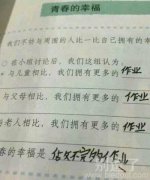 青春的幸福
我们不妨与周围的人比一比自己拥有的幸
在小组讨论后，我们这组认为
与儿童相比，我们拥有更多的作业
与父母相比，我们拥有更多的作业
老人相比，我们拥有更多的作业
春的幸福是 写不完的作业